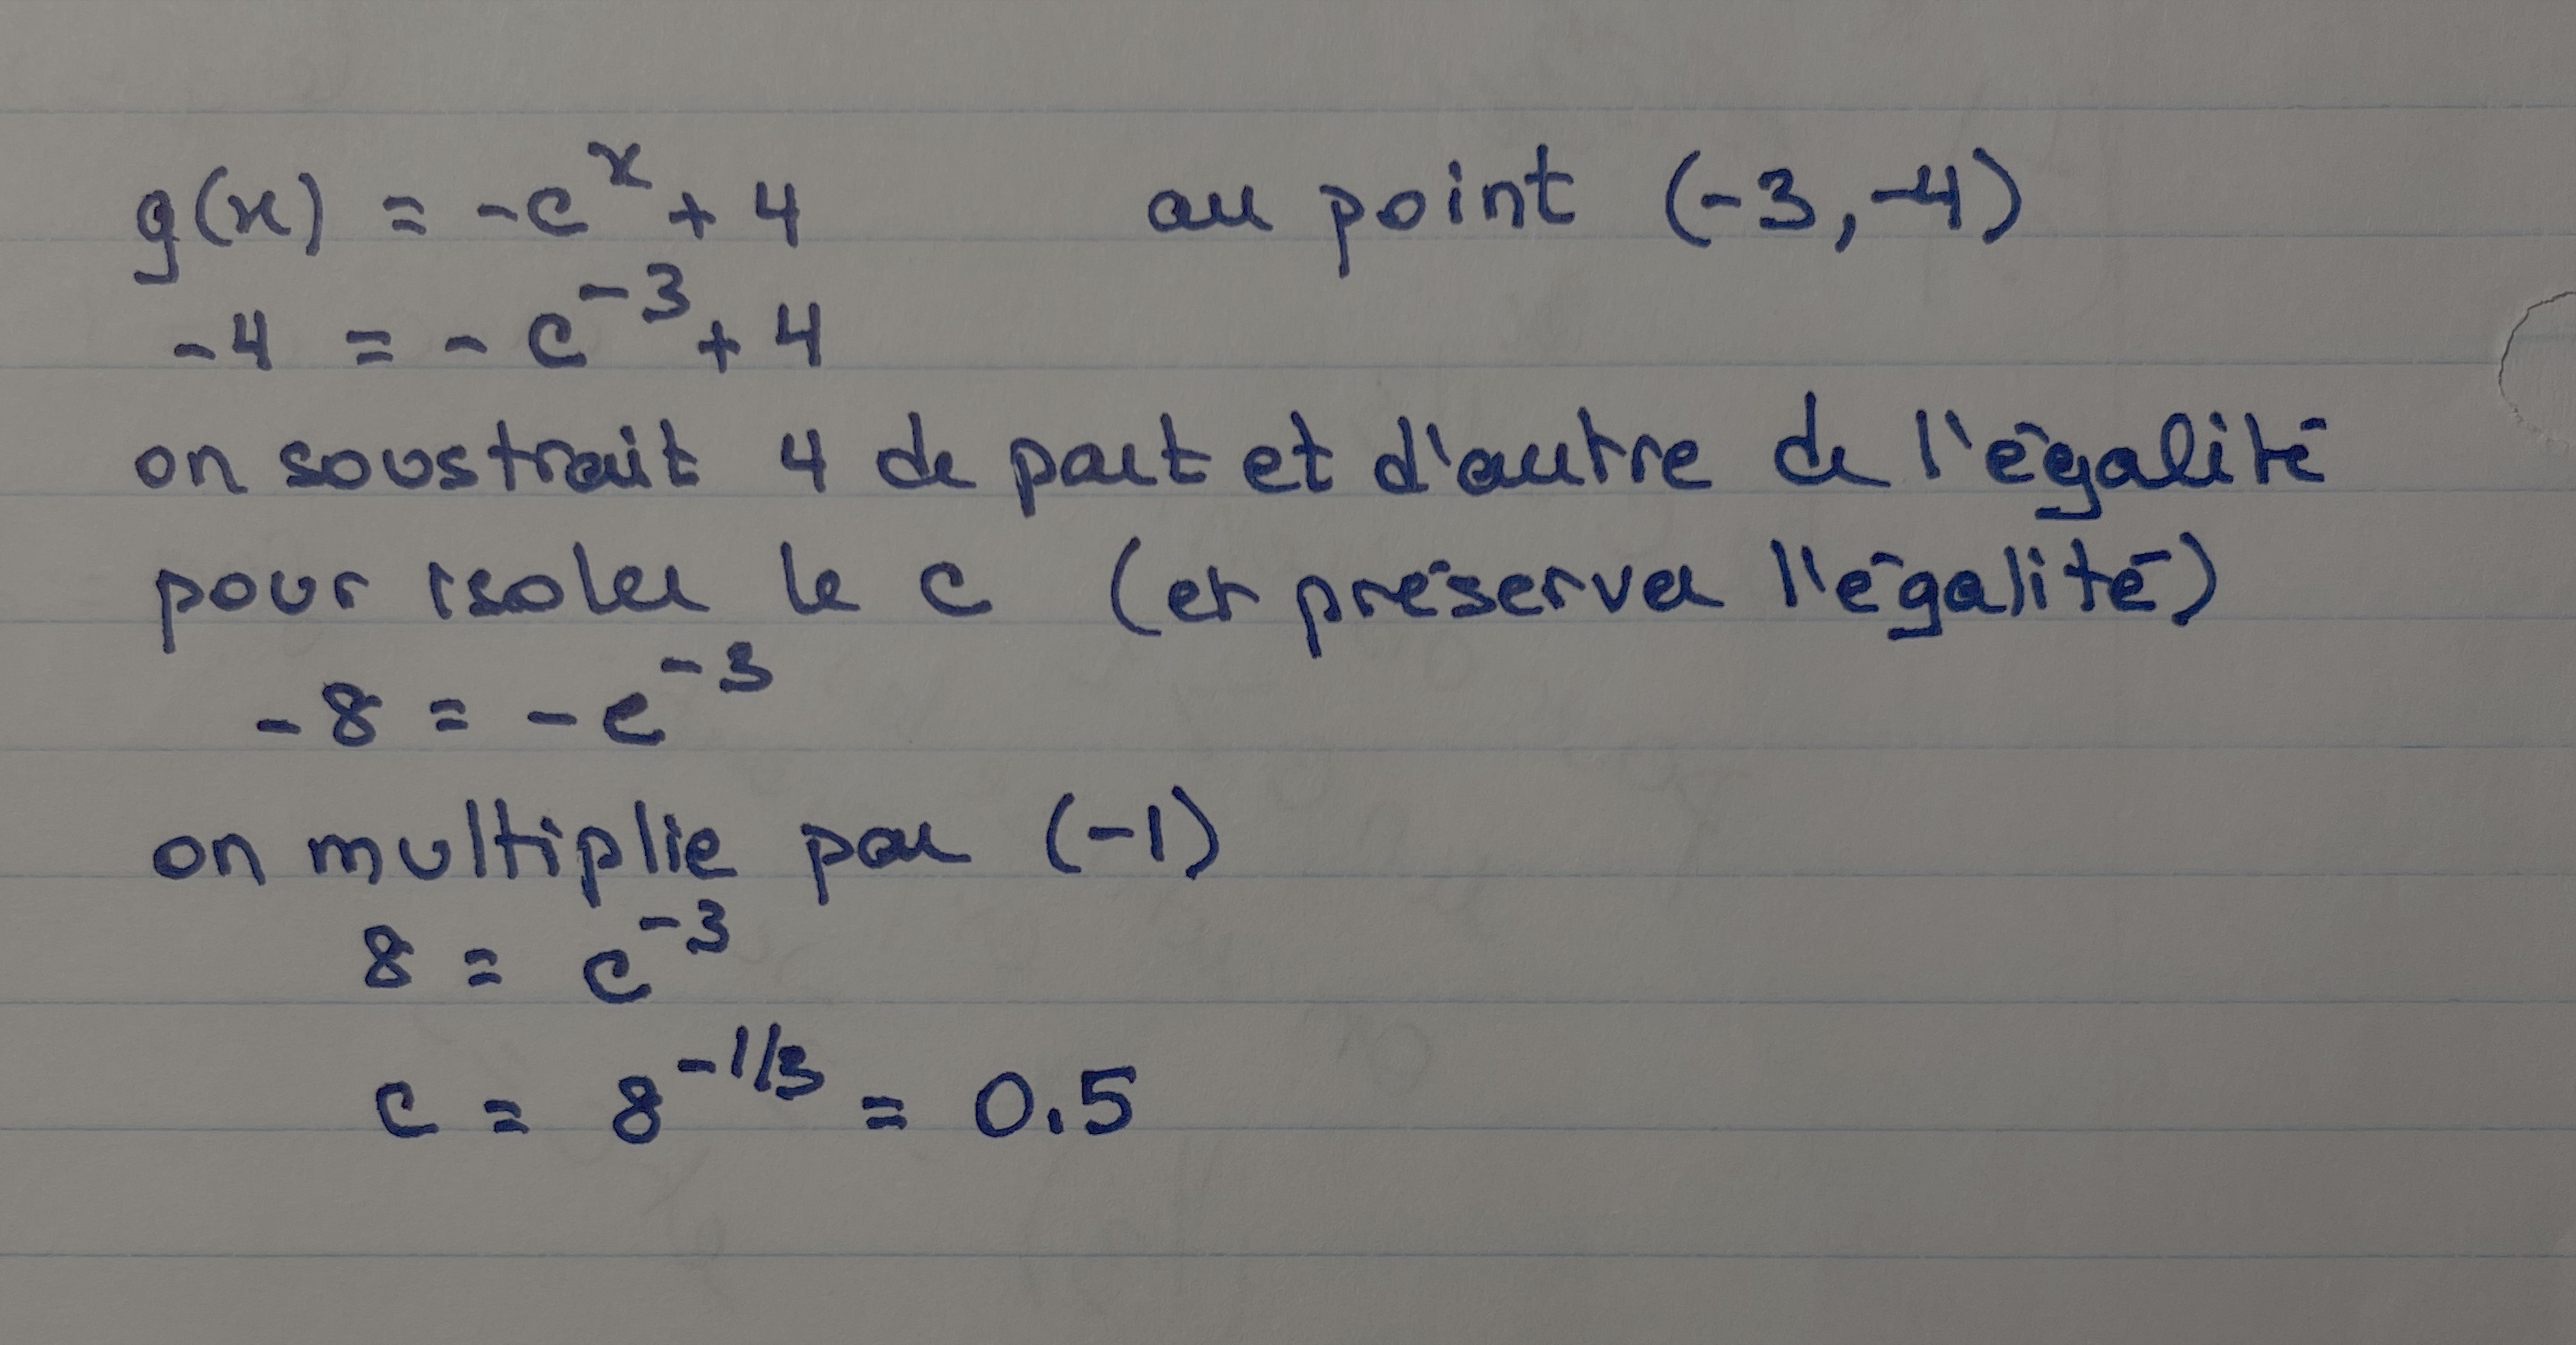 g(x) = -c^x + 4 au point (-3, -4)
-4 = -c^-3 + 4
on soustrait 4 de part et d'autre de l'égalité
pour isoler le c (et préserver l'égalité)
-8 = -c^-3
on multiplie par (-1)
8 = c^-3
c = 8^-1/3 = 0.5